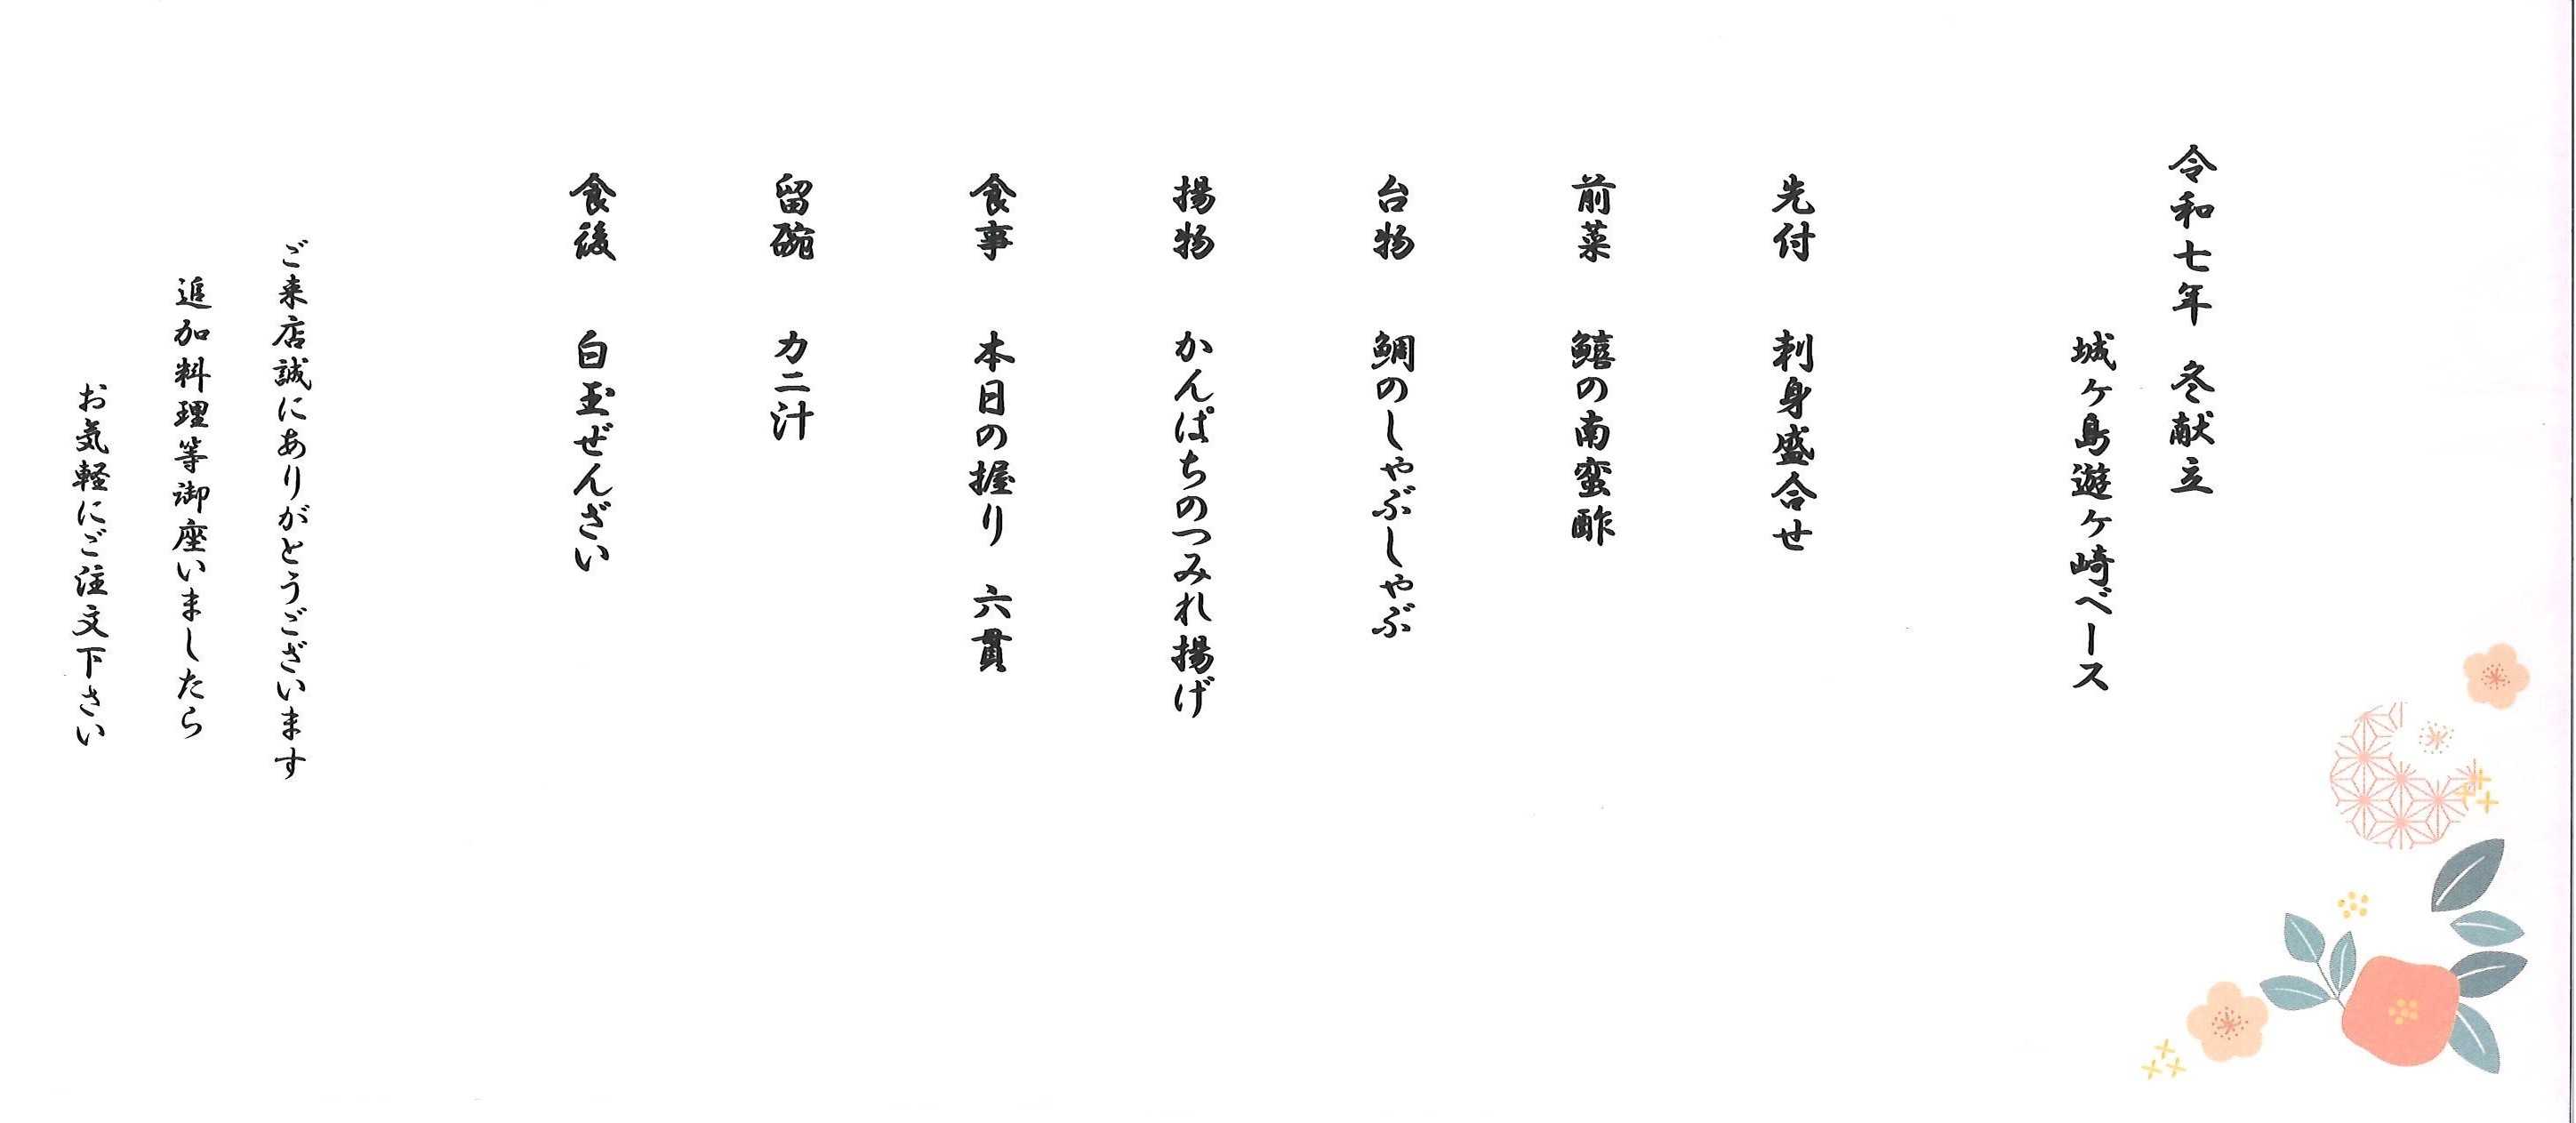 令和七年　冬献立
城ヶ島遊ヶ崎ベース
先付　刺身盛合せ
前菜　鱚の南蛮酢
台物　鯛のしゃぶしゃぶ
揚物　かんぱちのつみれ揚げ
食事　本日の握り　六貫
留碗　カニ汁
食後　白玉ぜんざい
ご来店誠にありがとうございます
追加料理等御座いましたら
お気軽にご注文下さい